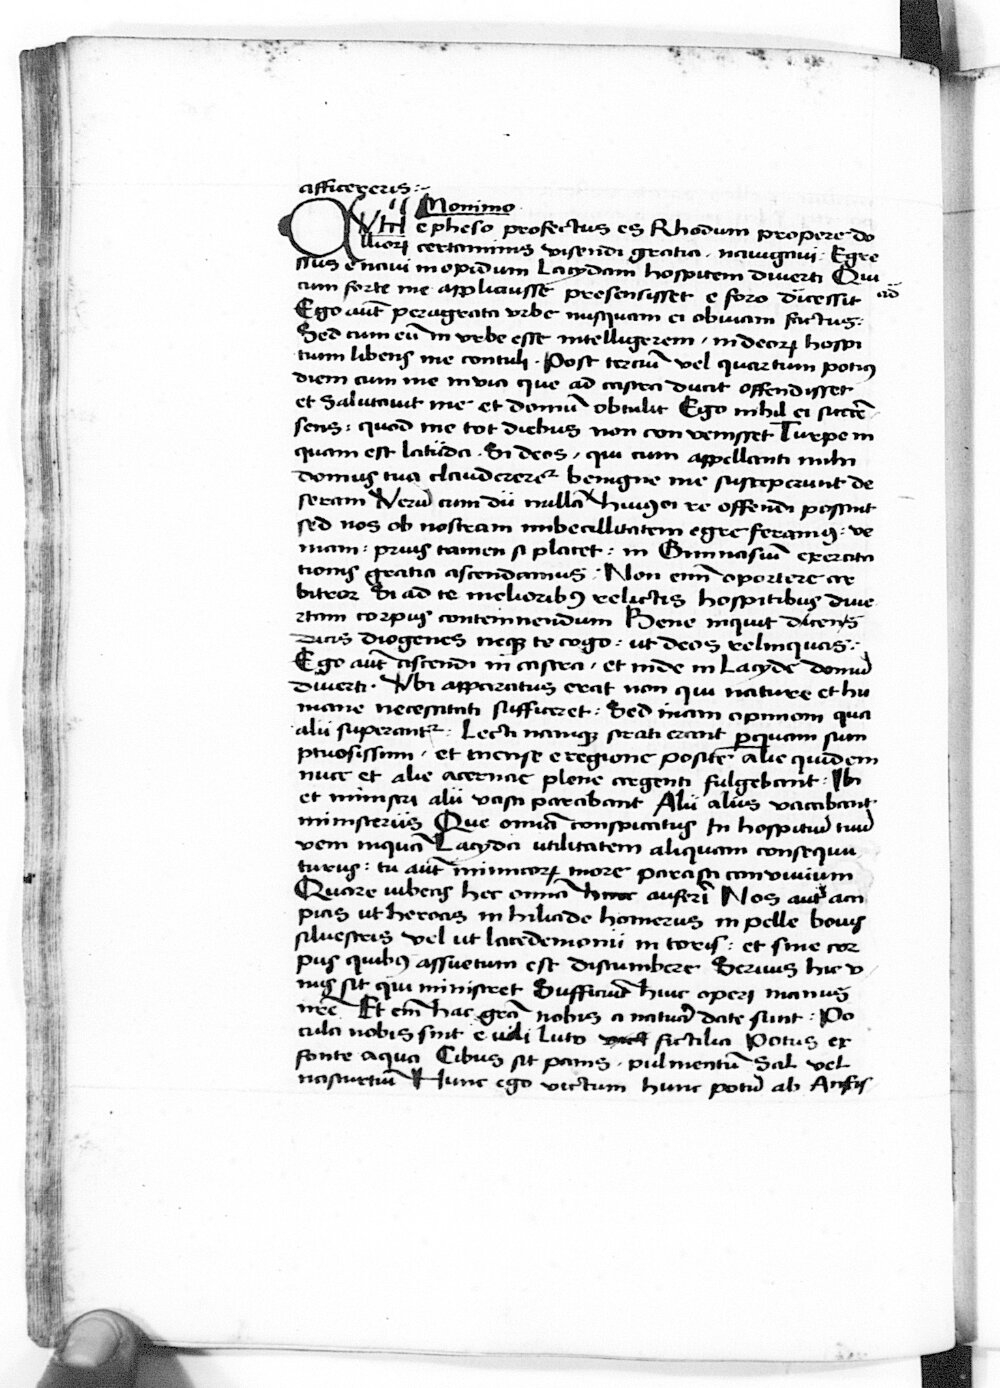 afficereris :~
Monimo
QVum e pheso profectus es Rhodum propere do
lliorum certaminis visendi gratia . navigavi : Egre
ssus e navi in opidum Lacydam hospitem diverti Qui
cum forte me applicuisse presensisset e foro dicessit
ad
Ego aut̄ peragrata vrbe nusquam ei obviam factus :
Sed cum eū in vrbe esse intelligerem / in deorum hospi
tium libens me contuli . Post terciū vel quartum potius
diem cum me in via que ad castra ducit offendisset
et Salutavit me et domū obtulit Ego nihil ei succē
sens : quod me tot diebus non con venisset Turpe in
quam est laciida . Si deos , qui cum appellanti mihi
domus tua clauderetur benigne me susceperunt de
seram Verū cum dii nulla huiusmodi re offendi possint
sed nos ob nostram imbecillitatem egre feramus : ve
niam : prius tamen si placet : in Gimnasiū exercita
tionis gratia ascendamus : Non enim oportere ar
bitror Si ad te melioribus relictis hospitibus dive
rtam corpus contemnendum Bene inquit dicens
Dicis diogenes neque te cogo : ut deos relinquas :
Ego aut̄ ascendi in castra , et inde in Lacyde domū
diverti . Vbi apparatus erat non qui nature et hu
mane necessitati sufficeret : Sed inani opinioni qua
alii superantur : Lecti namque strati erant perquam sum
ptuosissimi , et mense e regione posite alie quidem
nuce et alie acernae plene argenti fulgebant : Ibi
et ministri alii vasa parabant Alii aliis vacabant
ministeriis Que omnia conspicatus In hospitiū tuū
veni inquā Lacyda utilitatem aliquam consequu
turus : tu aut̄ inimicorum more parasti convivium
Quare iubeas hec omnia auferri Nos autē acci
pias ut heroas in hiliade homerus in pelle bovis
silvestris vel ut lacedemonii in toris : et sine cor
pus quibus assuetum est discumbere Servus hic v
nus sit qui ministret Sufficiūt huic operi manus
nrē Et enī hac grā nobis a naturā date sunt : Po
cula nobis sint e vili luto fictilia Potus ex
fonte aqua Cibus sit panis . pulmentū Sal vel
nasturtiū Hunc ego victum hunc potū ab Antis